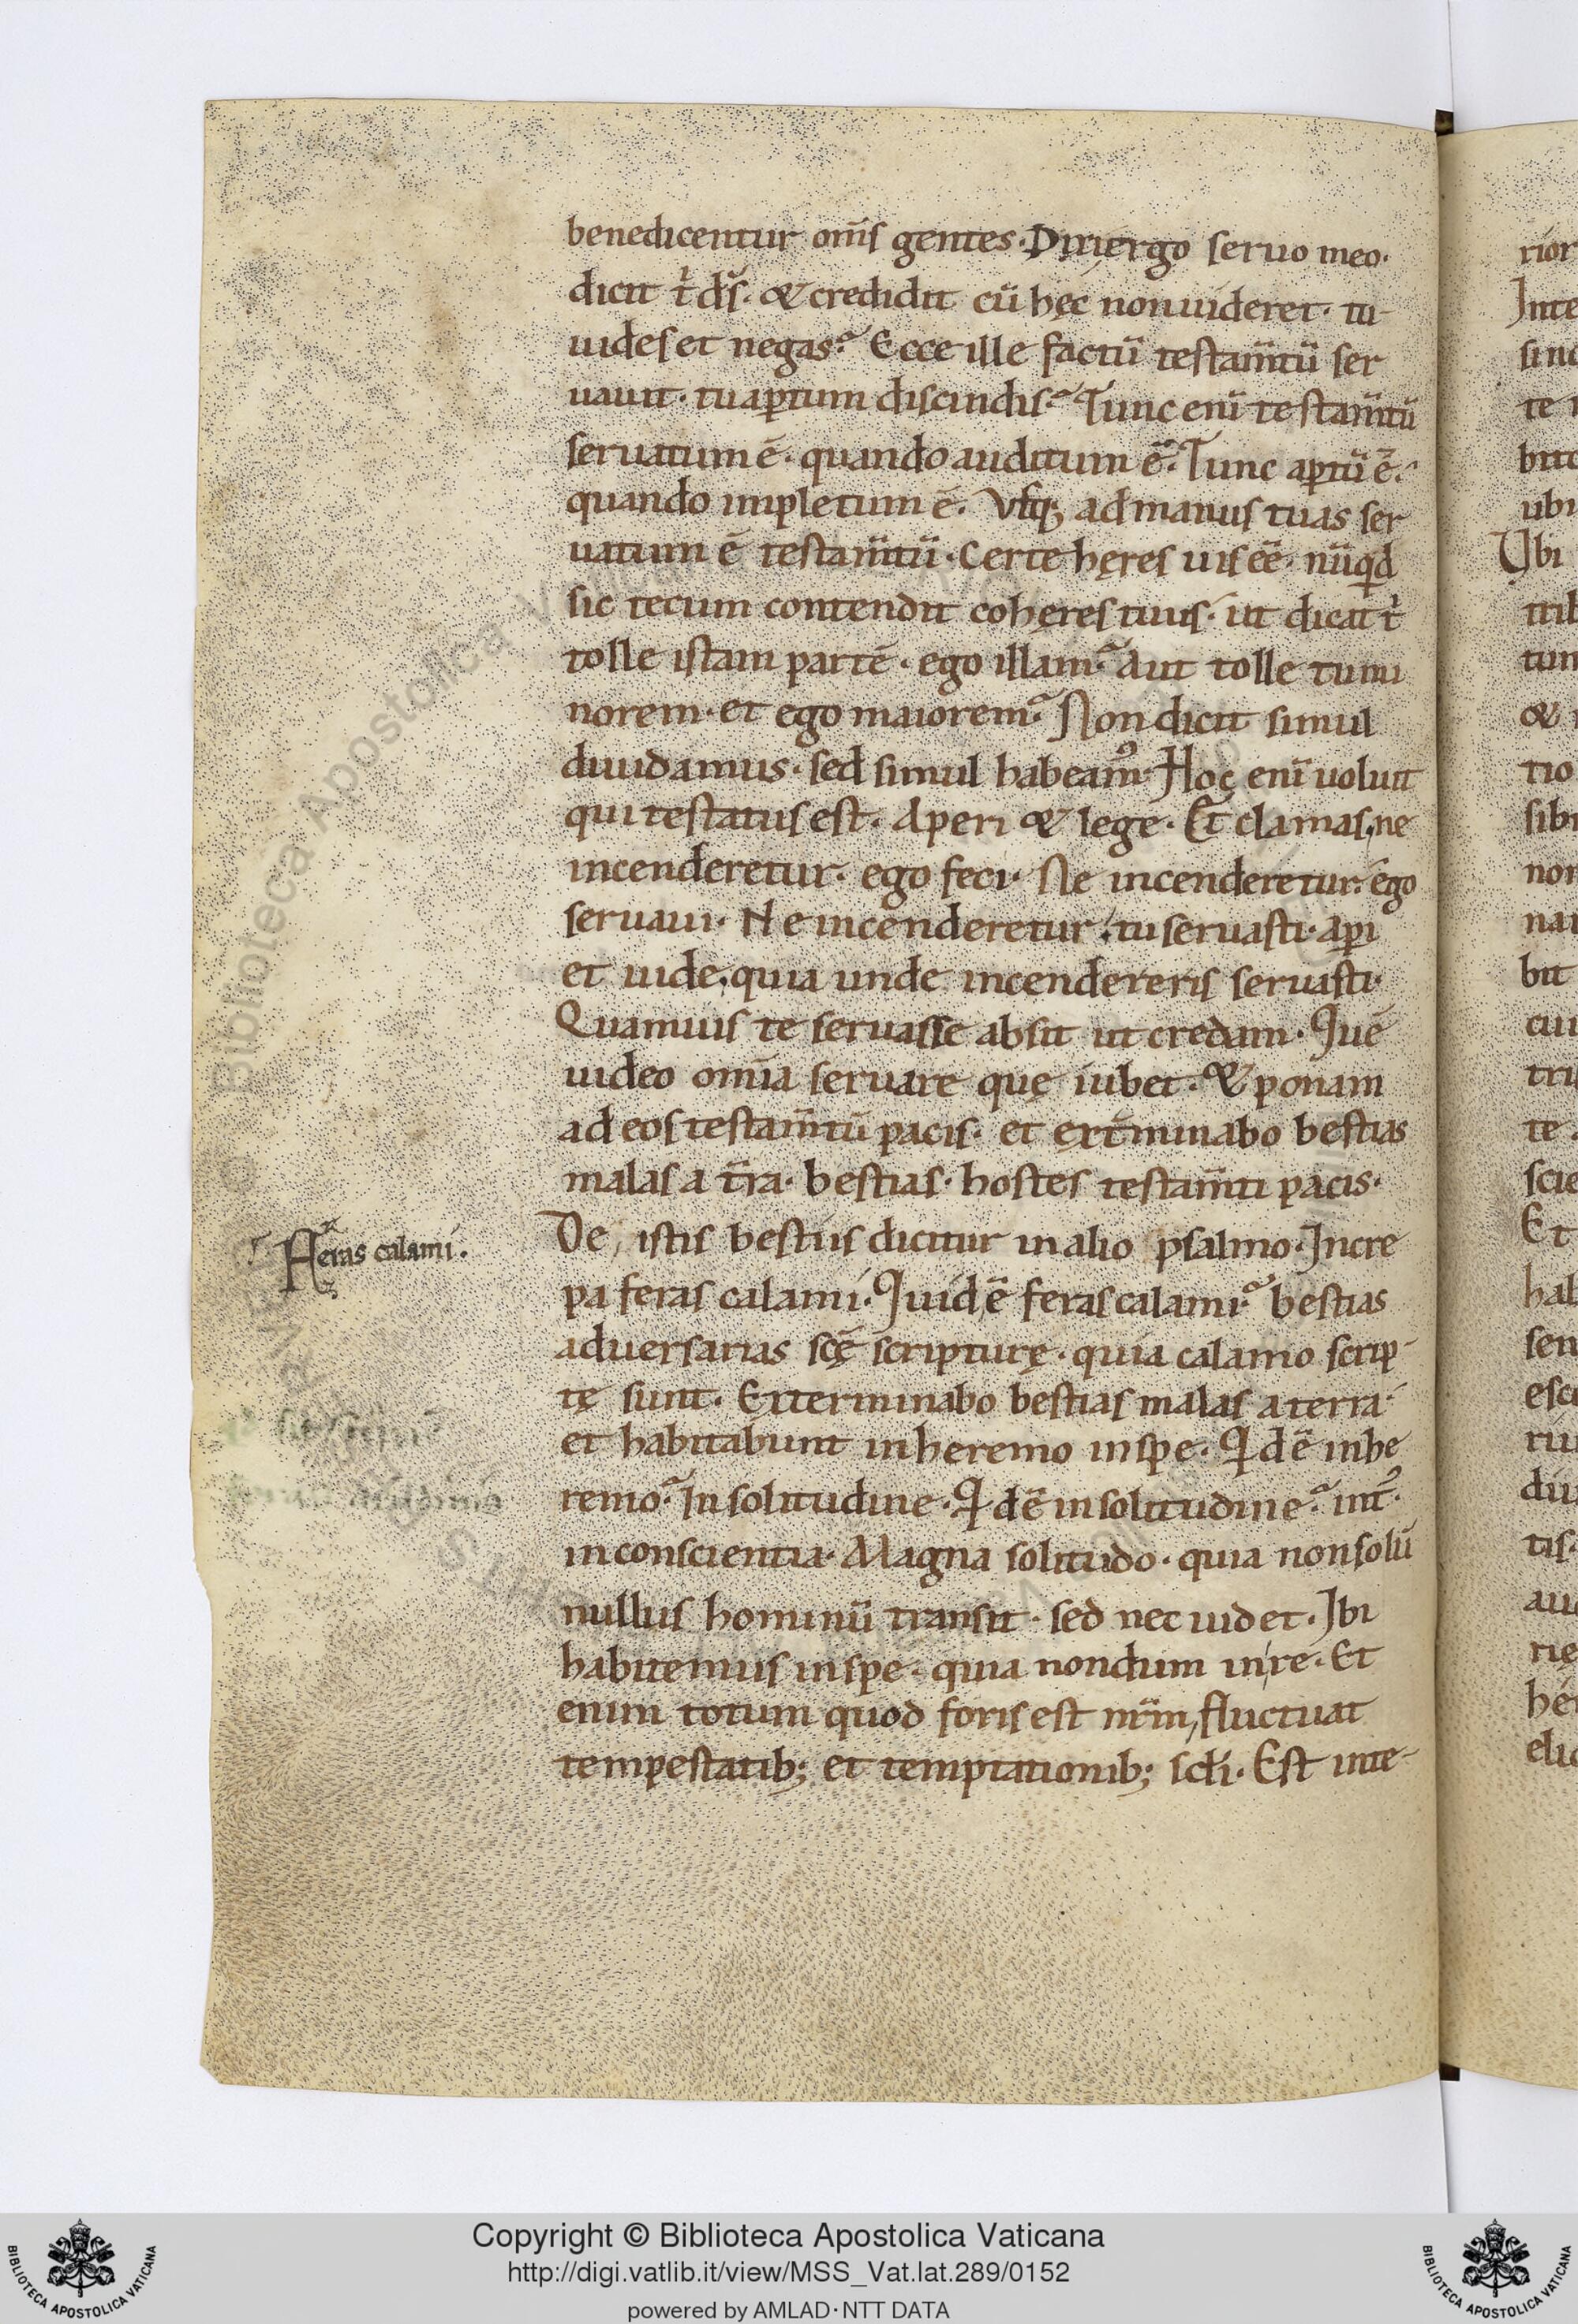 benedicentur om̄s gentes. Dixi ergo seruo meo.
dicit t̄ d̄s. & credidit cū hęc non uideret. tu
uides et negas? Ecce ille factū testam̄tū ser
uauit. tu aꝑtum discindis? Tunc enī testam̄tū
seruatum ē. quando auditum ē. Tunc aꝑtū ē.
quando impletum ē. Vsq; ad manus tuas ser
uatum ē testam̄tū. Certe hęres uis eē. nūqd
sic tecum contendit cohęres tuus. ut dicat t̄
tolle istam partē. ego illam? Aut tolle tu mi
norem. et ego maiorem? Non dicit simul
diuidamus. sed simul habeam᷒. Hoc enī uoluit
qui testatus est. Aperi & lege. Et clamas, ne
incenderetur. ego feci. Ne incenderetur. ego
seruaui. Ne incenderetur. tu seruasti. aꝑi
et uide, quia unde incendereris seruasti.
Quamuis te seruasse absit ut credam. Quē
uideo omīa seruare quę iubet. & ponam
ad eos testam̄tū pacis. et ext̄minabo bestias
malas a t̄ra. bestias. hostes testam̄ti pacis.
Feras calami.
De istis bestiis dicitur in alio psalmo. Incre
pa feras calami. Quid ē feras calami? bestias
aduersarias scę̄ scripturę. quia calamo scrip
tę sunt. Exterminabo bestias malas a terra
et habitabunt in heremo in spe. Qd ē in he
remo? In solitudine. Qd ē in solitudine? int᷒.
in conscientia. Magna solitudo. quia non solū
nullus hominū transit. sed nec uidet. Ibi
habitemus in spe. quia nondum in re. Et
enim totum quod foris est nr̄m, fluctuat
tempestatib; et temptationib; sc̄li. Est inte
Copyright © Biblioteca Apostolica Vaticana
http://digi.vatlib.it/view/MSS_Vat.lat.289/0152
powered by AMLAD · NTT DATA
BIBLIOTECA APOSTOLICA VATICANA
BIBLIOTECA APOSTOLICA VATICANA